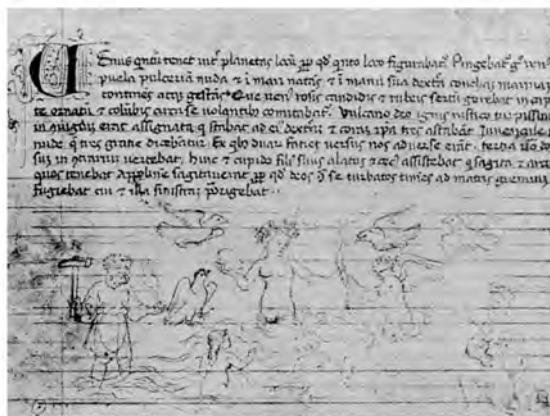 Venus quītū tenet int̄ planetas locū ꝓp qđ qnto loco figurabat᷑. Pingebat᷑ g̊ ven9
puela pulcerīa nuda ⁊ ī mari natās ⁊ ī manu sua dextra conchā marinā
continēs atq gestās. Que rosis candidis ⁊ rubeis sertū gerebat in capi
te ornatū ⁊ colūbis circa se volantib9 comitabat᷑. Vulcano deo ignis rustico turpissimo
erat assignata q stabat ad ei9 dextrā ⁊ corā ipā tres astabāt Iuvencule
nude q̄ tres gratie dicebātur. Ex qb9 duar facies versus nos adverse erāt. dor
suȝ in vertebat. huic ⁊ cupido fili9 suus alatus ⁊ cec9 assistebat q sagita ⁊ arcu
quos tenebat sagitaverat ꝓp qđ deos se turbatos timēs ad matris gremiuȝ
fugiebat cui ⁊ illa sinistrā porigebat.